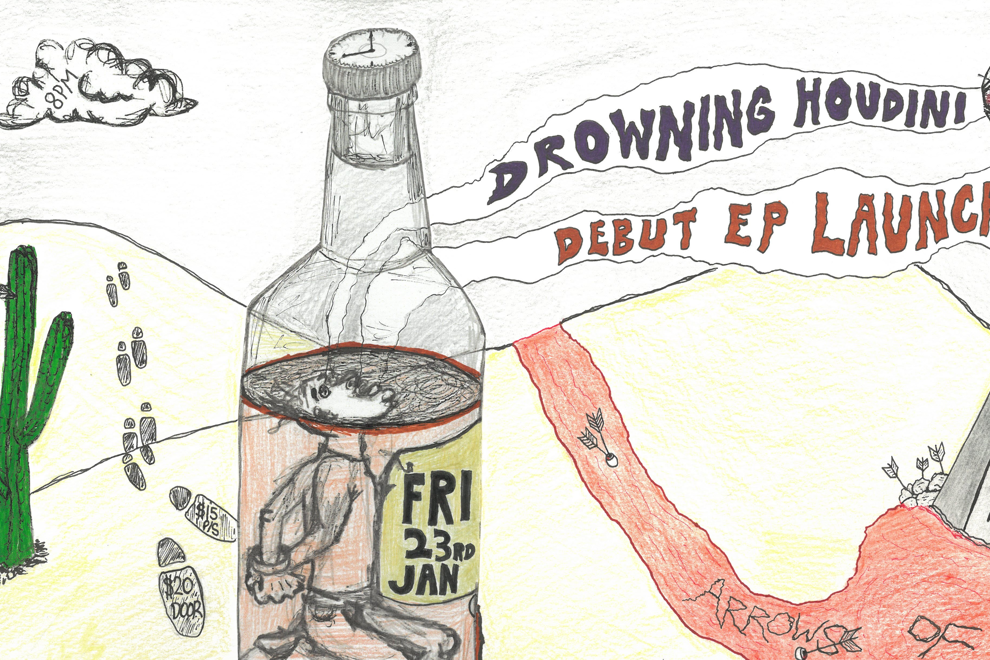 8PM
DROWNING HOUDINI
DEBUT EP LAUNCH
$15
P/S
$20
DOOR
FRI
23RD
JAN
ARROWS OF